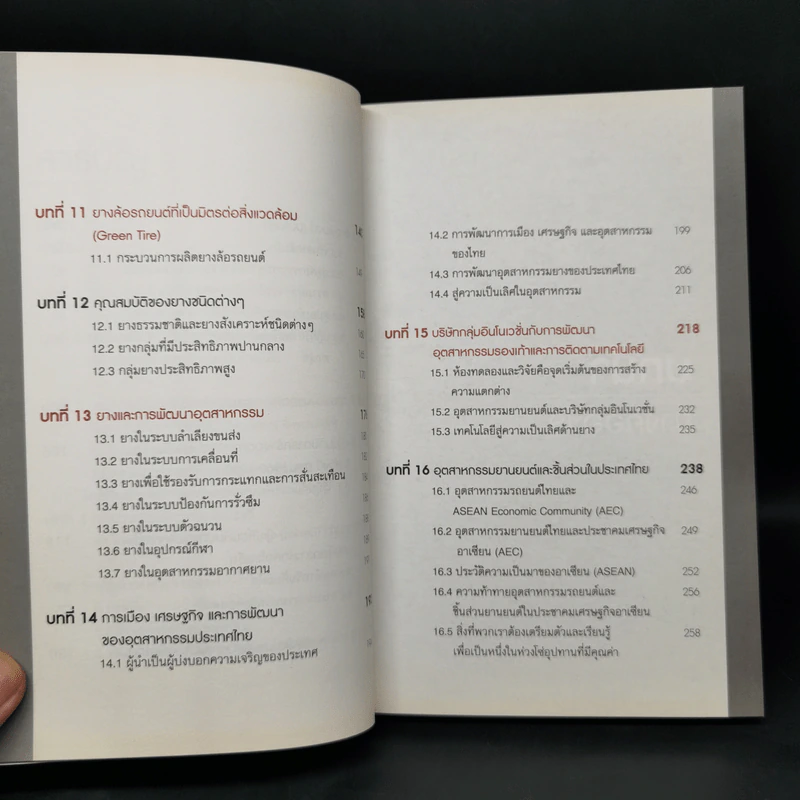 บทที่ 11 ยางล้อรถยนต์ที่เป็นมิตรต่อสิ่งแวดล้อม
(Green Tire)
11.1 กระบวนการผลิตยางล้อรถยนต์
บทที่ 12 คุณสมบัติของยางชนิดต่างๆ
12.1 ยางธรรมชาติและยางสังเคราะห์ชนิดต่างๆ
12.2 ยางกลุ่มที่มีประสิทธิภาพปานกลาง
12.3 กลุ่มยางประสิทธิภาพสูง
บทที่ 13 ยางและการพัฒนาอุตสาหกรรม
13.1 ยางในระบบลำเลียงขนส่ง
13.2 ยางในระบบการเคลื่อนที่
13.3 ยางเพื่อใช้รองรับการกระแทกและการสั่นสะเทือน
13.4 ยางในระบบป้องกันการรั่วซึม
13.5 ยางในระบบตัวฉนวน
13.6 ยางในอุปกรณ์กีฬา
13.7 ยางในอุตสาหกรรมอากาศยาน
บทที่ 14 การเมือง เศรษฐกิจ และการพัฒนา
ของอุตสาหกรรมประเทศไทย
14.1 ผู้นำเป็นผู้บ่งบอกความเจริญของประเทศ
14.2 การพัฒนาการเมือง เศรษฐกิจ และอุตสาหกรรม 199
ของไทย
14.3 การพัฒนาอุตสาหกรรมยางของประเทศไทย 206
14.4 สู่ความเป็นเลิศในอุตสาหกรรม 211
บทที่ 15 บริษัทกลุ่มอินโนเวชั่นกับการพัฒนา 218
อุตสาหกรรมรองเท้าและการติดตามเทคโนโลยี
15.1 ห้องทดลองและวิจัยคือจุดเริ่มต้นของการสร้าง 225
ความแตกต่าง
15.2 อุตสาหกรรมยานยนต์และบริษัทกลุ่มอินโนเวชั่น 232
15.3 เทคโนโลยีสู่ความเป็นเลิศด้านยาง 235
บทที่ 16 อุตสาหกรรมยานยนต์และชิ้นส่วนในประเทศไทย 238
16.1 อุตสาหกรรมรถยนต์ไทยและ 246
ASEAN Economic Community (AEC)
16.2 อุตสาหกรรมยานยนต์ไทยและประชาคมเศรษฐกิจ 249
อาเซียน (AEC)
16.3 ประวัติความเป็นมาของอาเซียน (ASEAN) 252
16.4 ความท้าทายอุตสาหกรรมรถยนต์และ 256
ชิ้นส่วนยานยนต์ในประชาคมเศรษฐกิจอาเซียน
16.5 สิ่งที่พวกเราต้องเตรียมตัวและเรียนรู้ 258
เพื่อเป็นหนึ่งในห่วงโซ่อุปทานที่มีคุณค่า